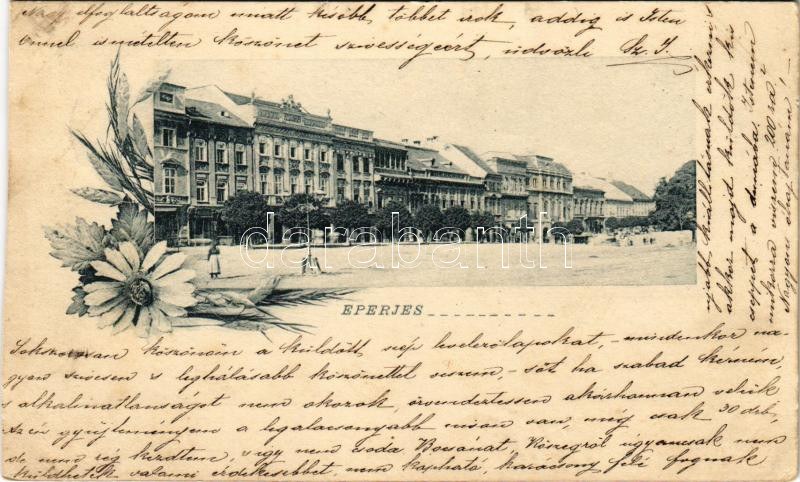 Nagy elfoglaltságom miatt később többet írok, addig is Isten
Önnel ismételten köszönet szívességéért, üdvözli Sz. J.
darabanth
EPERJES
Sokszorosan köszönöm a küldött szép levelezőlapokat, - mindenkor na-
gyon szívesen s leghálásabb köszönettel veszem, - sőt ha szabad kérnem,
s alkalmatlanságot nem okozok, örvendeztessen akárhonnan velük
Az én gyűjteményem a legalacsonyabb nívón van, még csak 30 drb,
de nem rég kezdtem, s így nem csoda. Bocsánat, Kőszegről ugyancsak nem
küldhetek valami érdekesebbet, nem kapható, karácsony felé fognak
újabb kiállításnak
akkor majd küldök